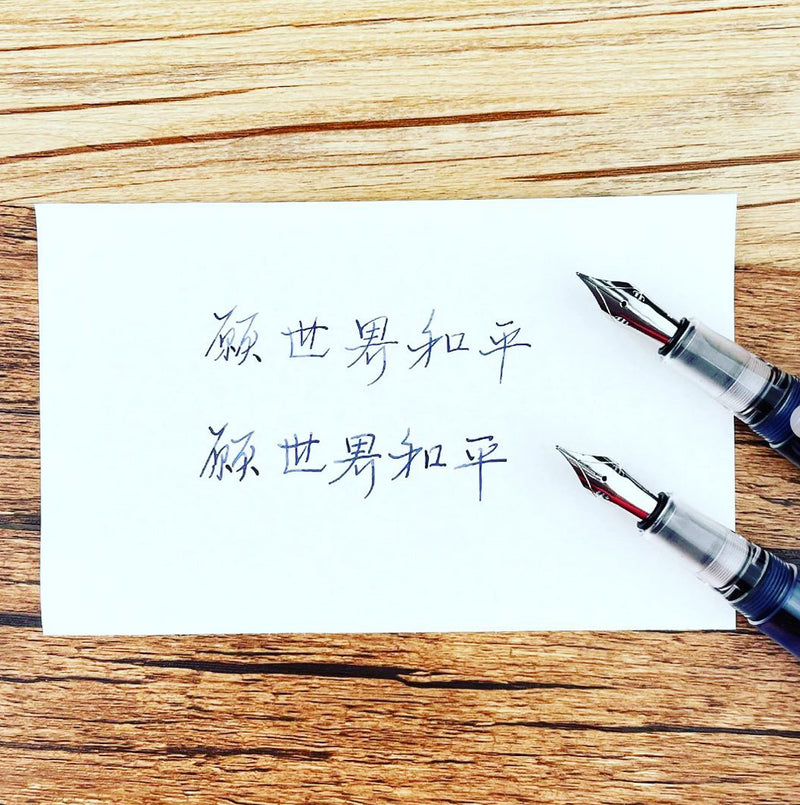 愿世界和平
愿世界和平